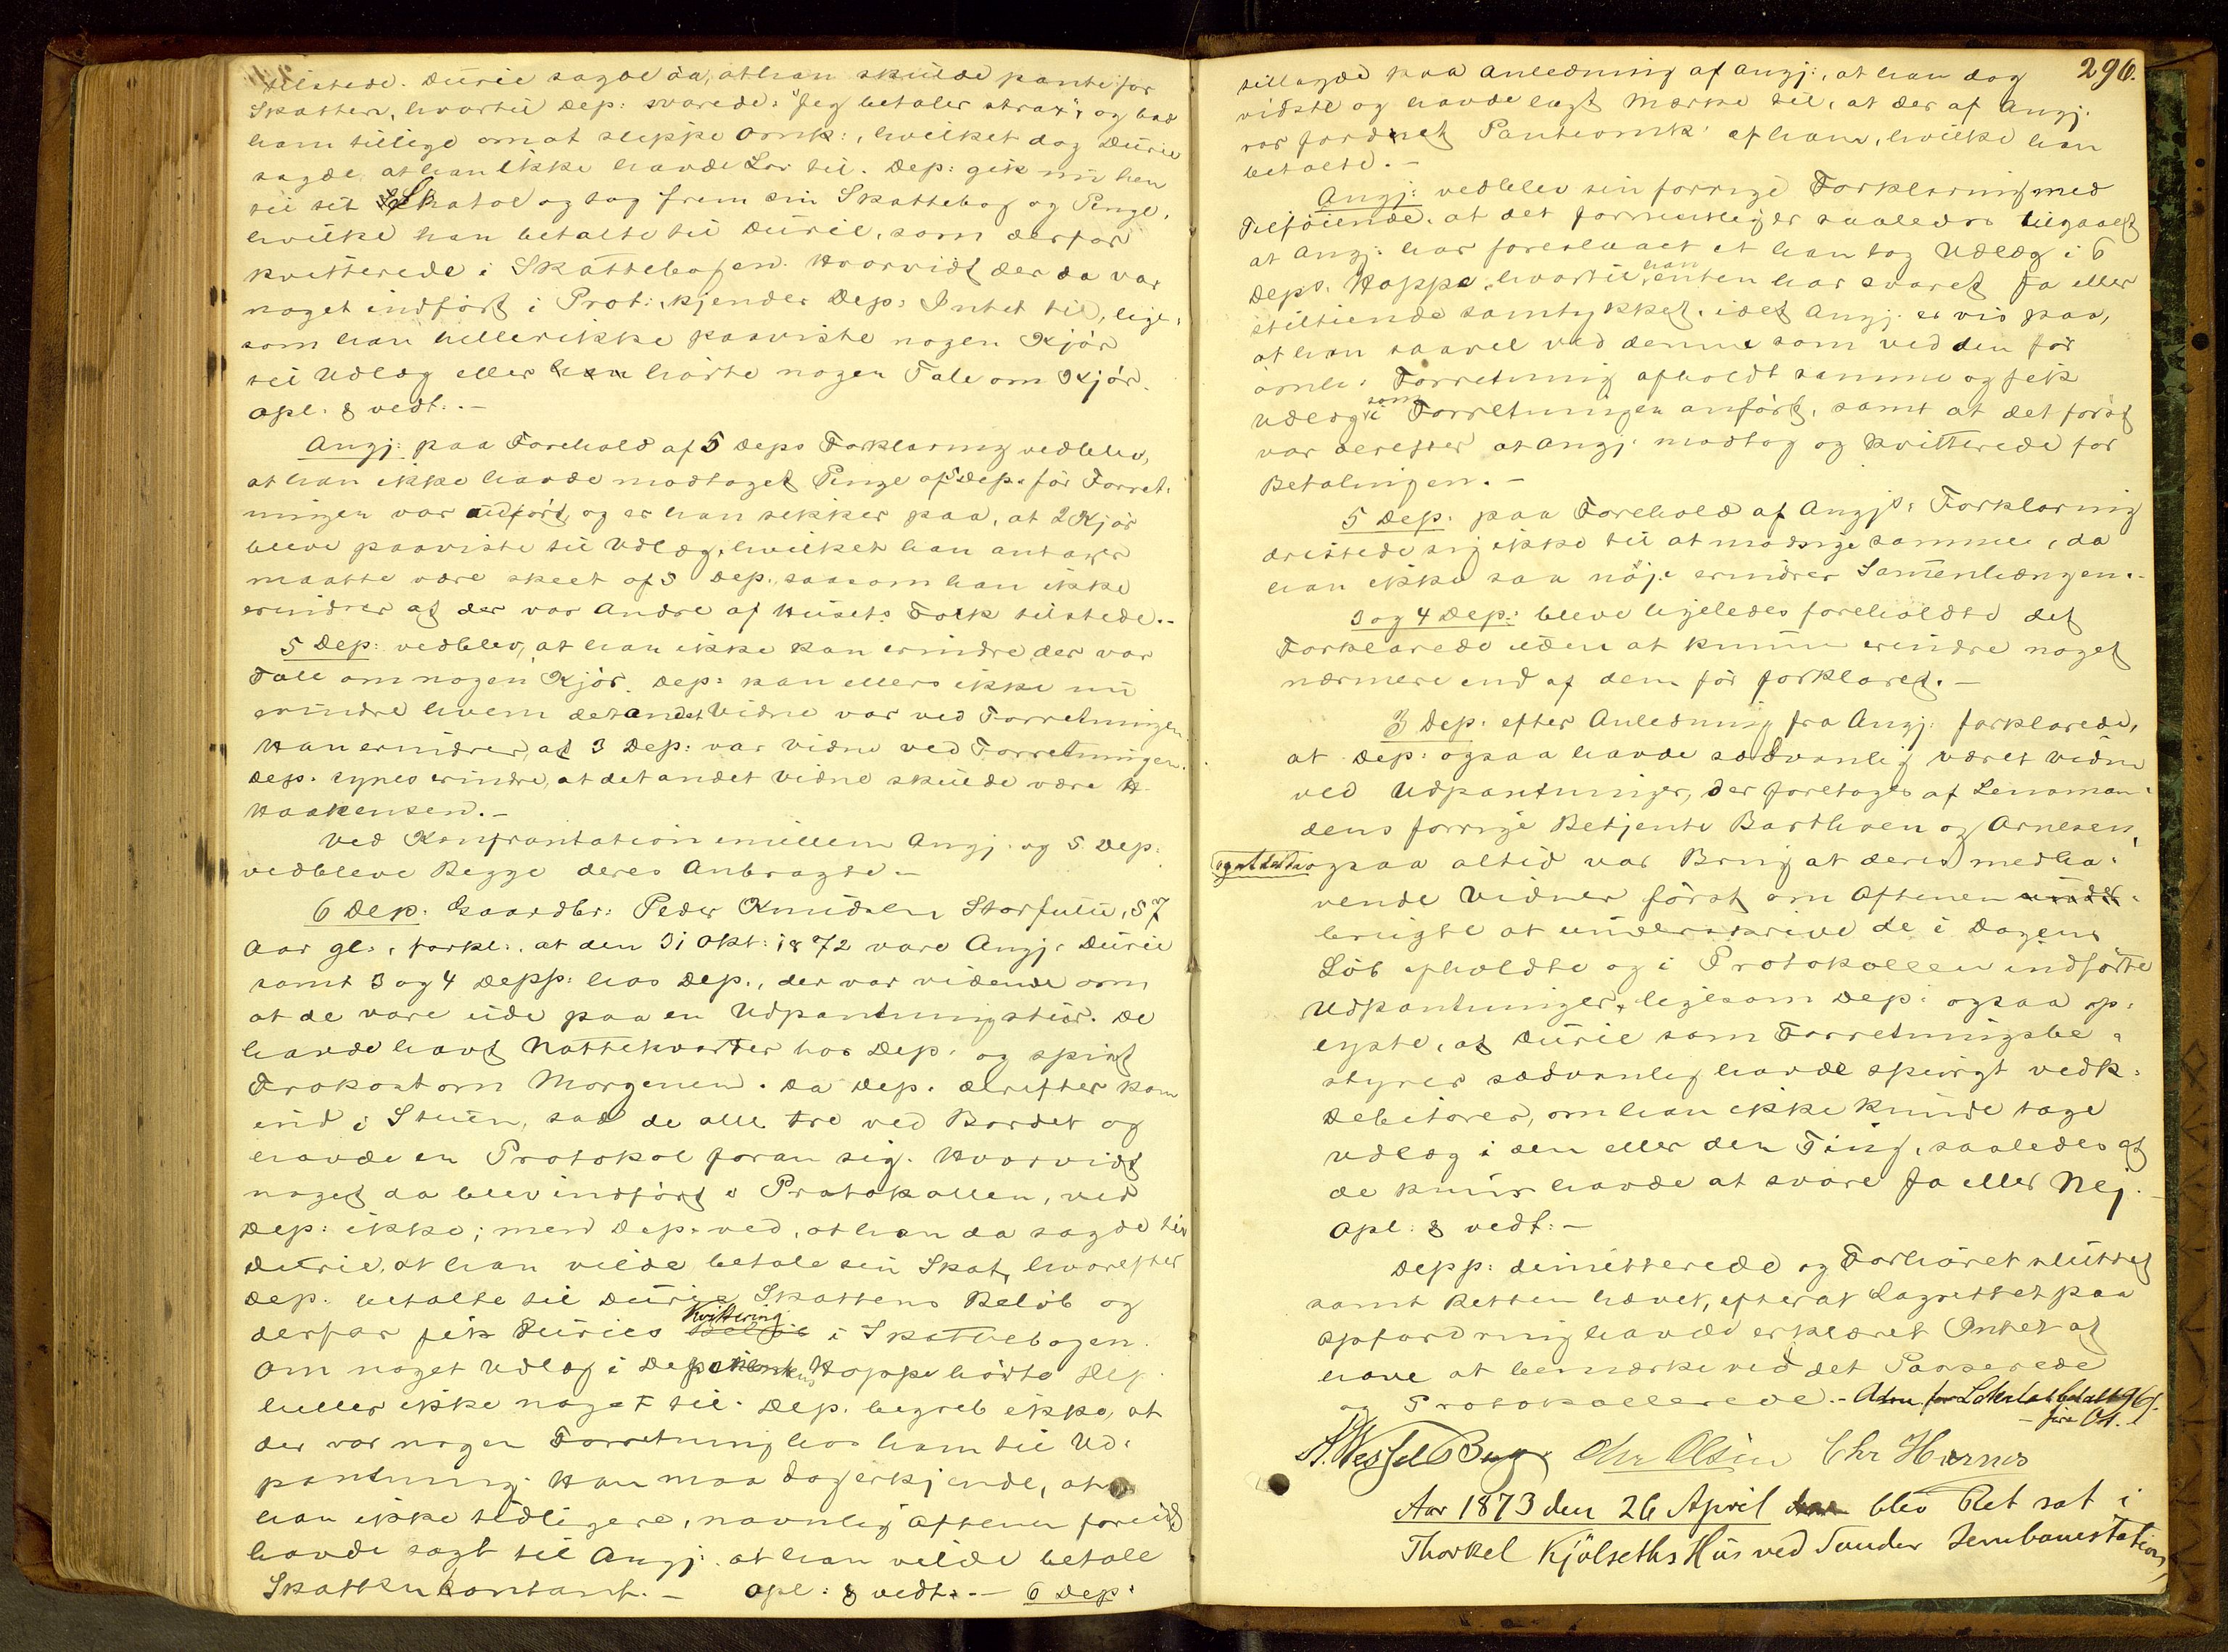 tilstede. Dürie sagde da, at han skulde pante for
Skatten, hvortil Dep: svarede: "Jeg betaler strax", og bad
ham tillige om at slippe Omk:, hvilket dog Dürie
sagde at han ikke havde Lov til. Dep: gik nu hen
til sit Skatol og tog frem sin Skattebog og Penge,
hvilke han betalte til Dürie, som derfor
kvitterede i Skattebogen. Hvorvidt der da var
noget indført i Prot:, kjender Dep: Intet til, lige-
som han heller ikke paaviste nogen Kjør
til Udlæg eller hørte nogen Tale om Kjør.
Opl. & vedt:.-
Angj: paa Forehold af 5 Deps Forklaring vedblev,
at han ikke havde modtaget Penge af 5 Dep. før Forret-
ningen var udført, og er han sikker paa, at 2 Kjør
bleve paaviste til Udlæg, hvilket han antager
maatte være skeet af 5 Dep., saasom han ikke
erindrer at der var Andre af Husets Folk tilstede.-
5 Dep: vedblev, at han ikke kan erindre, der var
Tale om nogen Kjør. Dep: kan ellers ikke nu
erindre hvem det andet Vidne var ved Forretningen.
Han erindrer, at 3 Dep: var Vidne ved Forretningen.
Dep. synes erindre, at det andet Vidne skulde være H.
Haakensen.-
Ved Konfrontation imellem Angj. og 5 Dep:
vedbleve Begge deres Anbragte.-
6 Dep. Gaardbr: Peder Knudsen Storfulu, 57
Aar gl:, forkl:, at den 31 Okt: 1872 vare Angj: Dürie
samt 3 og 4 Depp: hos Dep., der var vidende om
at de vare ude paa en Udpantningstur. De
havde havt Nattekvarter hos Dep. og spist
Frokost om Morgenen. Da Dep. derefter kom
ind i Stuen, sad de alle tre ved Bordet og
havde en Protokol foran sig. Hvorvidt
noget da blev indført i Protokollen, ved
Dep: ikke; men Dep. ved, at han da sagde til
Dürie, at han vilde betale sin Skat, hvorefter
Dep. betalte til Dürie Skattens Beløb og
derfor fik Düries Kvittering i Skattebogen.
Om noget Udlæg i Deps Hoppe hørte Dep.
heller ikke noget til. Dep. begreb ikke, at
der var nogen Forretning hos ham til Ud-
pantning. Han maa dog erkjende, at
han ikke tidligere, navnlig Aftenen forud
havde sagt til Angj: at han vilde betale
Skatten kontant.- Opl: & vedt:.- 6 Dep:
290.
tillagde paa Anledning af Angj:, at han dog
vidste og havde lagt Mærke til, at der af Angj.
var fordret Panteomk: af ham, hvilke han
betalte.-
Angj: vedblev sin forrige Forklaring med
Tilføiende, at det formentlig er saaledes tilgaaet
at Angj: har foreslaaet at han tog Udlæg i 6
Deps. Hoppe, hvortil han enten har svaret Ja eller
stiltiende samtykket, idet Angj. er vis paa,
at han saavel ved denne som ved den før
omh: Forretning afholdt samme og fik
Udlæg som i Forretningen anført, samt at det først
var derefter at Angj. modtog og kvitterede for
Betalingen.-
5 Dep. paa Forehold af Angjs: Forklaring
dristede sig ikke til at modsige samme, da
han ikke saa nøje erindrer Sammenhængen.-
3 og 4 Dep: bleve ligeledes foreholdte det
Forklarede uden at kunne erindre noget
nærmere end af dem før forklaret.-
3 Dep. efter Anledning fra Angj: forklarede,
at Dep: ogsaa havde sædvanlig været Vidne
ved Udpantninger, der foretages af Lensman-
dens forrige Betjente Barthsen og Arnesen,
og at det da ogsaa altid var Brug at deres medha-
vende Vidner først om Aftenen
brugte at underskrive de i Dagens
Løb afholdte og i Protokollen indførte
Udpantninger, ligesom Dep: ogsaa op-
lyste, at Dürie som Forretningsbe-
styrer sædvanlig havde spurgt vedk:
Debitorer, om han ikke kunde tage
Udlæg i den eller den Ting, saaledes at
de kuns havde at svare Ja eller Nej.-
Opl: & vedt:-
Depp: dimitterede og Forhøret sluttet
samt Retten hævet, efterat Lagrettet paa
Opfordring havde erklæret Intet at
have at bemærke ved det Passerede
og Protokollerede.-
A. Wessel Berg. Chr Olsen Chr Hernes
Aar 1873 den 26 April blev Ret sat i
Thorkel Kjølseths Hus ved Tander Jernbanestation,